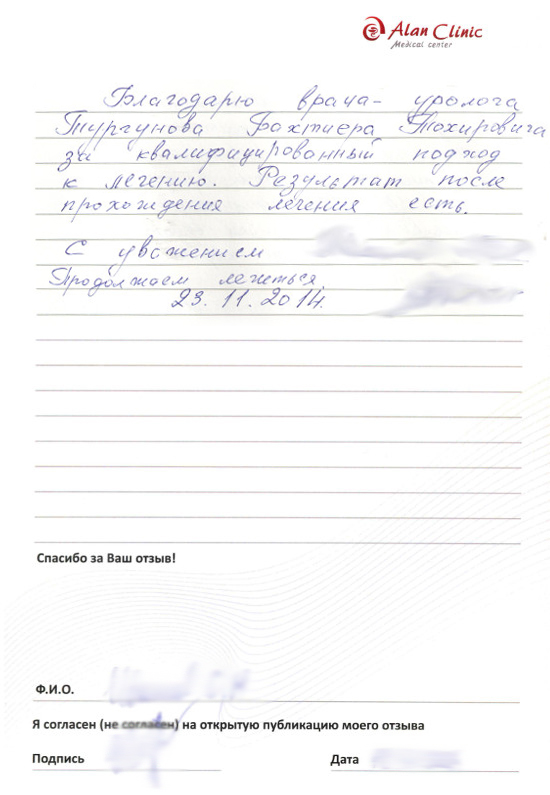 Alan Clinic
Medical center
Благодарю врача-уролога
Тургунова Бахтиера Тохировича
за квалифицированный подход
к лечению. Результат после
прохождения лечения есть.
С уважением
Продолжаем лечиться.
23.11.2014.
Спасибо за Ваш отзыв!
Ф.И.О.
Я согласен (не согласен) на открытую публикацию моего отзыва
Подпись Дата